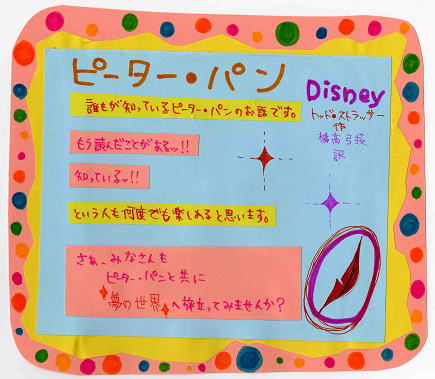 ピーター・パン
Disney
トッド・ストラッサー
作
橘高弓枝
訳
誰もが知っているピーター・パンのお話です。
もう読んだことがあるッ!!
知っているッ!!
という人も何度でも楽しめると思います。
さぁ、みなさんも
ピーター・パンと共に
夢の世界へ旅立ってみませんか?